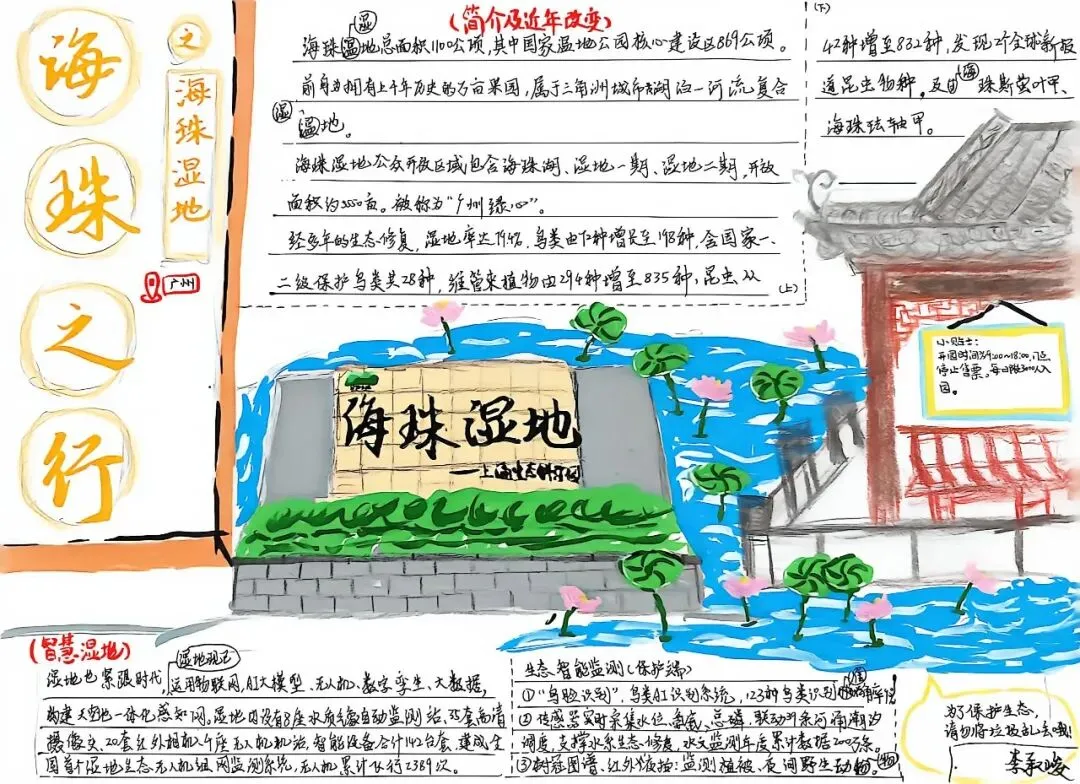 海
珠
之
行
之
海珠湿地
广州
(简介及近年改变)
湿
海珠湿地总面积1100公顷,其中国家湿地公园核心建设区869公顷。
前身为拥有上千年历史的万亩果园,属于三角洲城市湖泊—河流复合
湿 湿地。
海珠湿地公众开放区域包含海珠湖、湿地一期、湿地二期,开放
面积约3550亩。被称为“广州绿心”。
经多年的生态修复,湿地率达79%,鸟类由72种增长至198种,含国家一、
二级保护鸟类共28种,维管束植物由294种增至835种,昆虫从
(上)
(下)
42种增至832种,发现2个全球新报
道昆虫物种。及由海珠斯萤叶甲、
海珠珐轴甲。
小贴士:
开园时间为9:00~18:00,门点
停止售票。每日限3000人入
园。
海珠湿地
(智慧湿地)
湿地现已
湿地也紧跟时代,运用物联网、AI大模型、无人机、数字孪生、大数据,
构建天空地一体化感知网。湿地内设有8座水质气象自动监测站、75套高清
摄像头、20套红外相机、1座无人机机站,智能设备合计142台套,建成全
国首个湿地生态无人机组网监测系统,无人机累计飞行2389次。
生态智能监测(保护端)
①“鸟脸识别”,鸟类AI识别系统,123种鸟类识别
②传感器实时采集水位、氨氮、总磷,联动39条河涌潮汐
调度,支撑水系生态修复,水文监测年度累计数据200万条。
③树冠图谱、红外夜拍:监测植被、夜间野生动物
为了保护生态,
请勿将垃圾乱丢哦!
李承峻